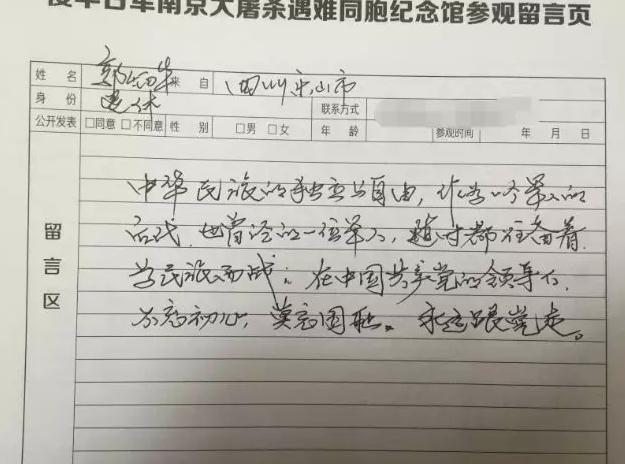 侵华日军南京大屠杀遇难同胞纪念馆参观留言页
姓 名 来 自 四川乐山市
身 份 退休 联系方式
公开发表 □同意 □不同意 性 别 □男 □女 年 龄 参观时间 年 月 日
留言区
中华民族的独立与自由，作为一个军人的
后代，也曾经的一位军人，随时都准备着
为民族而战；在中国共产党的领导下，
不忘初心，莫忘国耻。永远跟党走。